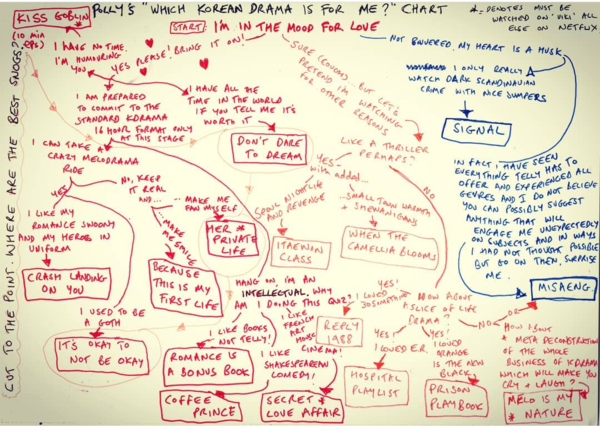 POLLY'S "WHICH KOREAN DRAMA IS FOR ME?" CHART
* = DENOTES MUST BE
WATCHED ON 'VIKI' ALL
ELSE ON NETFLIX
KISS GOBLIN *
(10 MIN
EPS)
CUT TO THE POINT. WHERE ARE THE BEST SNOGS?
START: I'M IN THE MOOD FOR LOVE
I HAVE NO TIME.
I'M HUMOURING
YOU
YES PLEASE! BRING IT ON!
SURE (COUGH). BUT LET'S
PRETEND I'M WATCHING
FOR OTHER REASONS
NOT BOVVERED. MY HEART IS A HUSK
I AM PREPARED
TO COMMIT TO THE
STANDARD KDRAMA
16 HOUR FORMAT ONLY
AT THIS STAGE
I HAVE ALL THE
TIME IN THE WORLD
IF YOU TELL ME IT'S
WORTH IT
DON'T DARE
TO DREAM
I ONLY REALLY
WATCH DARK SCANDINAVIAN
CRIME WITH NICE JUMPERS
SIGNAL
I CAN TAKE A
CRAZY MELODRAMA
RIDE
YES
NO, KEEP
IT REAL
AND...
... MAKE ME
FAN MYSELF
HER *
PRIVATE
LIFE
... MAKE
ME SMILE
BECAUSE
THIS IS MY
FIRST LIFE
I LIKE MY
ROMANCE SWOONY
AND MY HEROES IN
UNIFORM
CRASH LANDING
ON YOU
I USED TO BE
A GOTH
IT'S OKAY TO
NOT BE OKAY
LIKE A THRILLER
PERHAPS?
YES-
WITH ADDED...
NO
SEOUL NIGHTLIFE
AND REVENGE
ITAEWON
CLASS
...SMALL TOWN WARMTH
+ SHENANIGANS
WHEN THE
CAMELLIA BLOOMS
IN FACT I HAVE SEEN
EVERYTHING TELLY HAS TO
OFFER AND EXPERIENCED ALL
GENRES AND I DO NOT BELIEVE
YOU CAN POSSIBLY SUGGEST
ANYTHING THAT WILL
ENGAGE ME UNEXPECTEDLY
ON SUBJECTS AND IN WAYS
I HAD NOT THOUGHT POSSIBLE
BUT GO ON THEN, SURPRISE
ME.
MISAENG
HANG ON, I'M AN
INTELLECTUAL. WHY
AM I DOING THIS QUIZ?
I LIKE BOOKS
NOT TELLY!
ROMANCE IS
A BONUS BOOK
I LIKE
FRENCH
ART
HOUSE
I LIKE CINEMA!
SHAKESPEAREAN
COMEDY!
COFFEE
PRINCE
SECRET *
LOVE AFFAIR
HOW ABOUT
A SLICE OF LIFE
DRAMA?
YES!
I LOVED
REPLY
1988
YES!
I LOVED E.R.
HOSPITAL
PLAYLIST
YES!
I LOVED
ORANGE
IS THE NEW
BLACK
PRISON
PLAYBOOK
NO
OR
HOW ABOUT
A META DECONSTRUCTION
OF THE WHOLE
BUSINESS OF KDRAMA
WHICH WILL MAKE YOU
CRY + LAUGH?
MELO IS MY
* NATURE